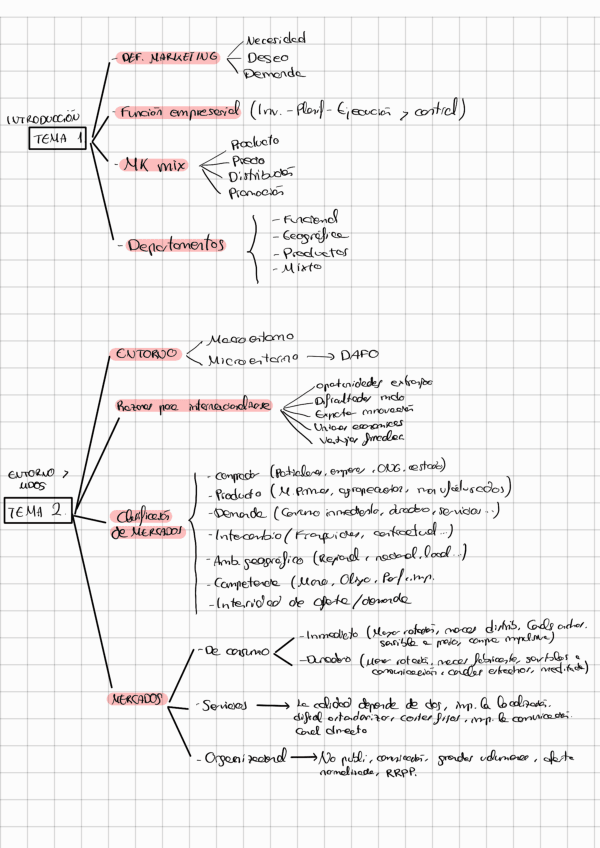 - DEF. MARKETING
Necesidad
Deseo
Demanda
INTRODUCCIÓN
TEMA 1
- Función empresarial (Inv. - Planif - Ejecución y control)
- MK mix
Producto
Precio
Distribución
Promoción
- Departamentos
- Funcional
- Geográfico
- Productos
- Mixto
- ENTORNO
Macroentorno
Microentorno → DAFO
Razones para internacionalizarse
oportunidades
Dificultades
innovación
económicas
Ventajas
ENTORNO y
TEMA 2
Clasificación
de MERCADOS
- Comprador (Particulares, empresa, ONG, estado)
- Producto (M. Primas, agropecuarios, manufacturados)
- Demanda (Consumo inmediato, duradero, servicios..)
- Intercambio (Franquicias, contractual...)
- Amb geográfico (Regional, nacional, local...)
- Competencia (Mono, Oligo, Perf, imp.
- Intensidad de oferta/demanda
MERCADOS
- De consumo
- Inmediato (Mayor rotación, marcas distrib,
sensible a precio, compra impulsiva)
- Duradero (Menor rotación, marcas fabricante, sensibles a
comunicación, canales estrechos, meditada)
- Servicios → La calidad depende de dos, imp. la localización.
dificil estandarizar, costes fijos, imp. la comunicación.
Canal directo
- Organizacional → No publi, comunicación, grandes volumenes, oferta
normalizada, RRPP.